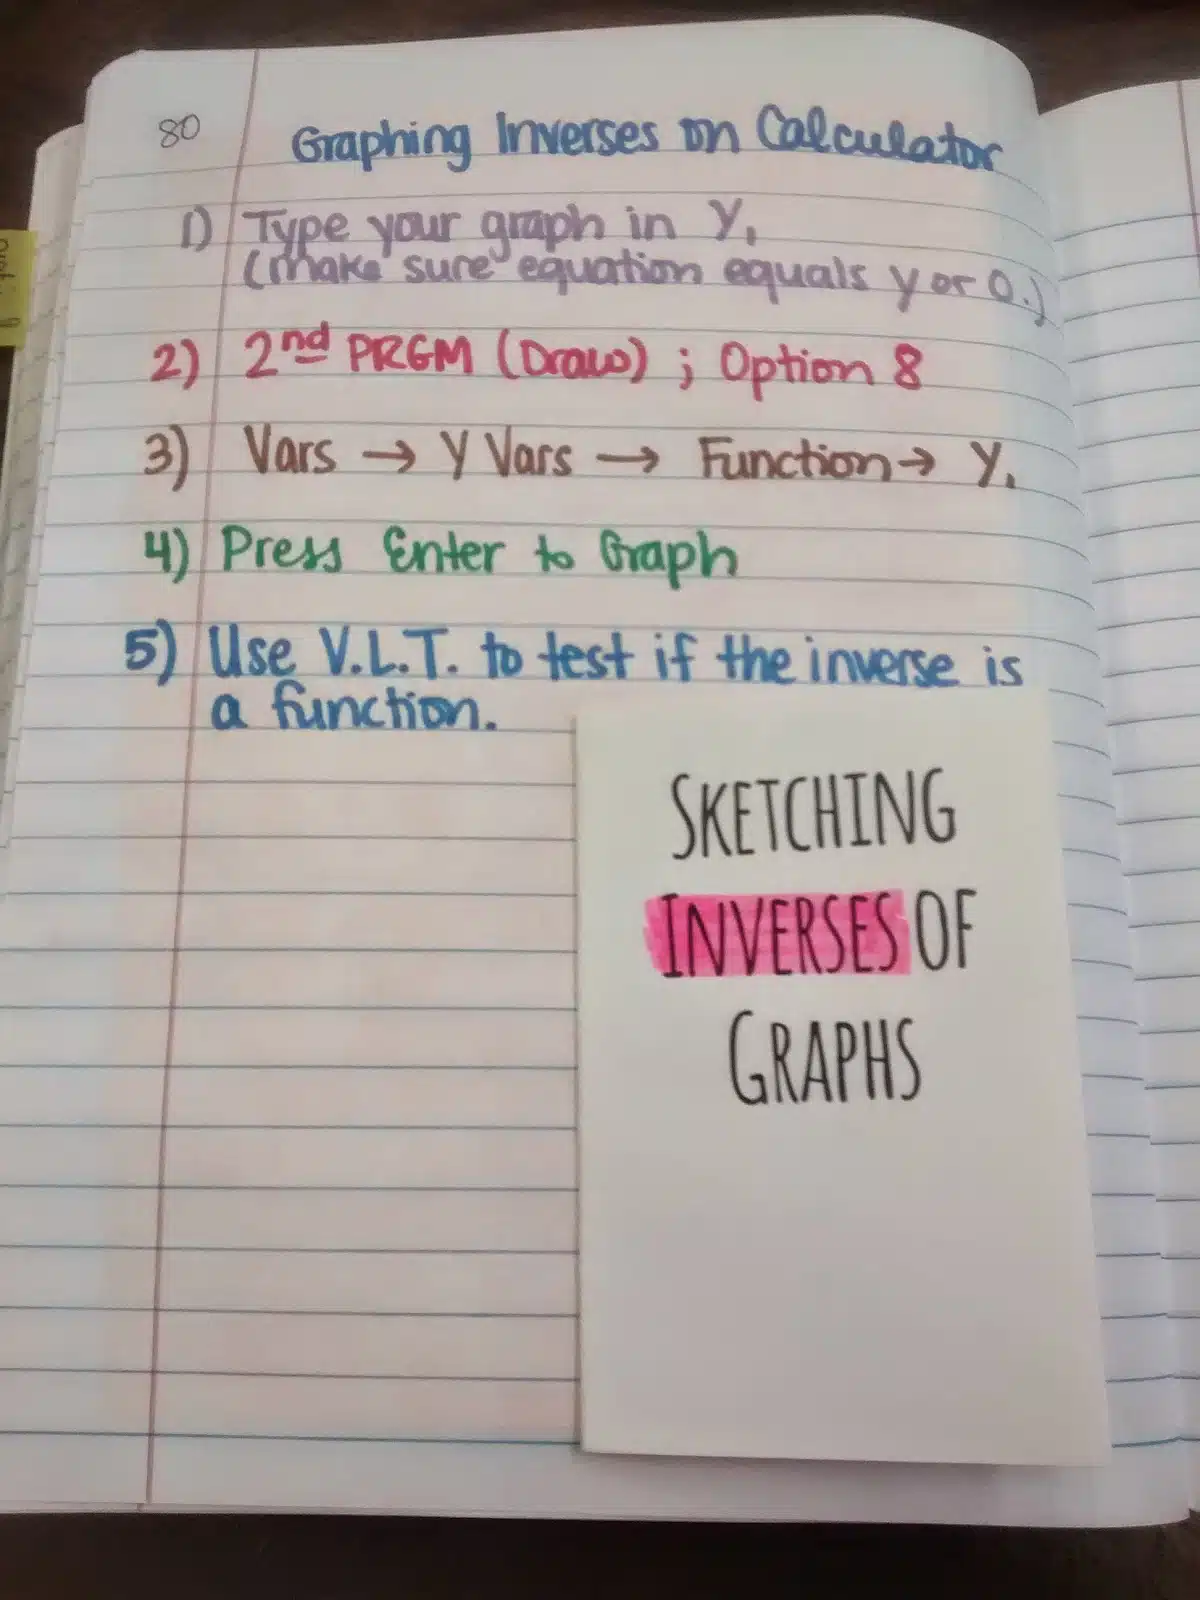 80
Graphing Inverses on Calculator
1) Type your graph in Y₁
(make sure equation equals y or 0.)
2) 2nd PRGM (Draw) ; Option 8
3) Vars → Y Vars → Function → Y₁
4) Press Enter to Graph
5) Use V.L.T. to test if the inverse is
a function.
SKETCHING
INVERSES OF
GRAPHS